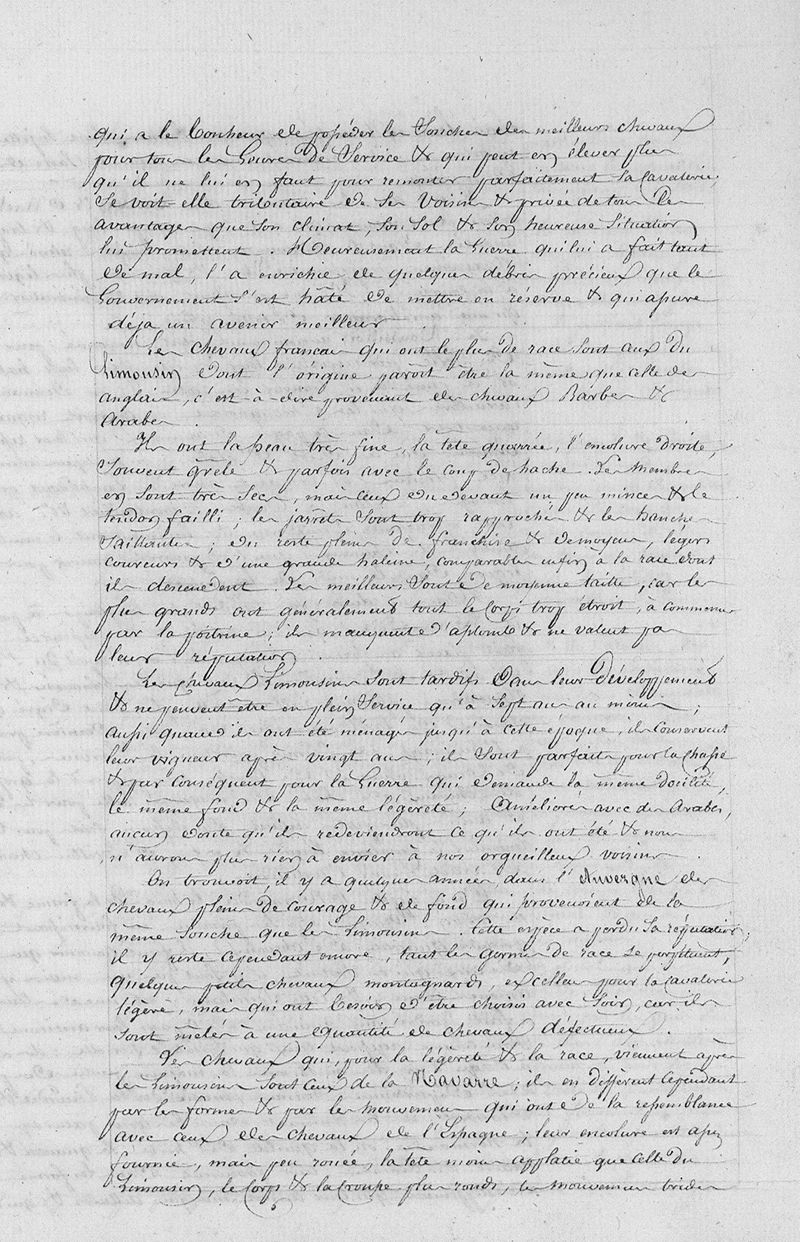 qui a le bonheur de posséder les Souches des meilleurs chevaux
pour tous les Genres de Service & qui peut en élever plus
qu'il ne lui en faut pour remonter parfaitement sa Cavalerie,
se voit elle tributaire de ses Voisins & privée de tous les
avantages que son climat, son sol & son heureuse situation
lui promettent. Heureusement la Guerre qui lui a fait tant
de mal, l'a enrichie de quelques débris précieux que le
Gouvernement s'est hâté de mettre en réserve & qui assure
déja un avenir meilleur.
Les chevaux francais qui ont le plus de race sont ceux du
Limousin dont l'origine paroit être la même que celle des
anglais, c'est-à-dire provenant des chevaux Barbes &
Arabes.
Ils ont la peau très fine, la tête quarrée, l'encolure droite,
souvent grêle & parfois avec le coup de hache. Les membres
en sont très secs, mais ceux du devant un peu minces & le
tendon failli; les jarrets sont trop rapprochés & les hanches
saillantes; du reste pleins de franchise & de moyens, légers
coureurs & d'une grande haleine, comparables enfin à la race dont
ils descendent. Les meilleurs sont de moyenne taille, car les
plus grands ont généralement tout le corps trop étroit, à commencer
par la poitrine; ils manquent d'aplomb & ne valent pas
leur réputation.
Les chevaux Limousins sont tardifs dans leur développement
& ne peuvent être en plein Service qu'à Sept ans au moins;
aussi quand ils ont été ménagés jusqu'à cette époque, ils conservent
leur vigueur après vingt ans; ils sont parfaits pour la chasse
& par conséquent pour la Guerre qui demande la même docilité,
le même fond & la même légèreté; Améliorés avec des Arabes,
aucun doute qu'ils redeviendront ce qu'ils ont été & nous
n'aurons plus rien à envier à nos orgueilleux voisins.
On trouvoit, il y a quelques années, dans l'Auvergne des
chevaux pleins de courage & de fond qui provenoient de la
même souche que les Limousins. Cette espèce a perdu sa réputation;
il y reste cependant encore, tant les germes de race se perpétuent,
quelques petits chevaux montagnards, excellens pour la Cavalerie
légère, mais qui ont besoin d'être choisis avec soin, car ils
sont mêlés à une quantité de chevaux défectueux.
Les chevaux qui, pour la légèreté & la race, viennent après
les Limousins sont ceux de la Navarre; ils en diffèrent cependant
par les formes & par les mouvemens qui ont de la ressemblance
avec ceux des chevaux de l'Espagne; leur encolure est assez
fournie, mais peu rouée, la tête moins applatie que celle du
Limousin, le corps & la croupe plus ronds, les mouvemens trides